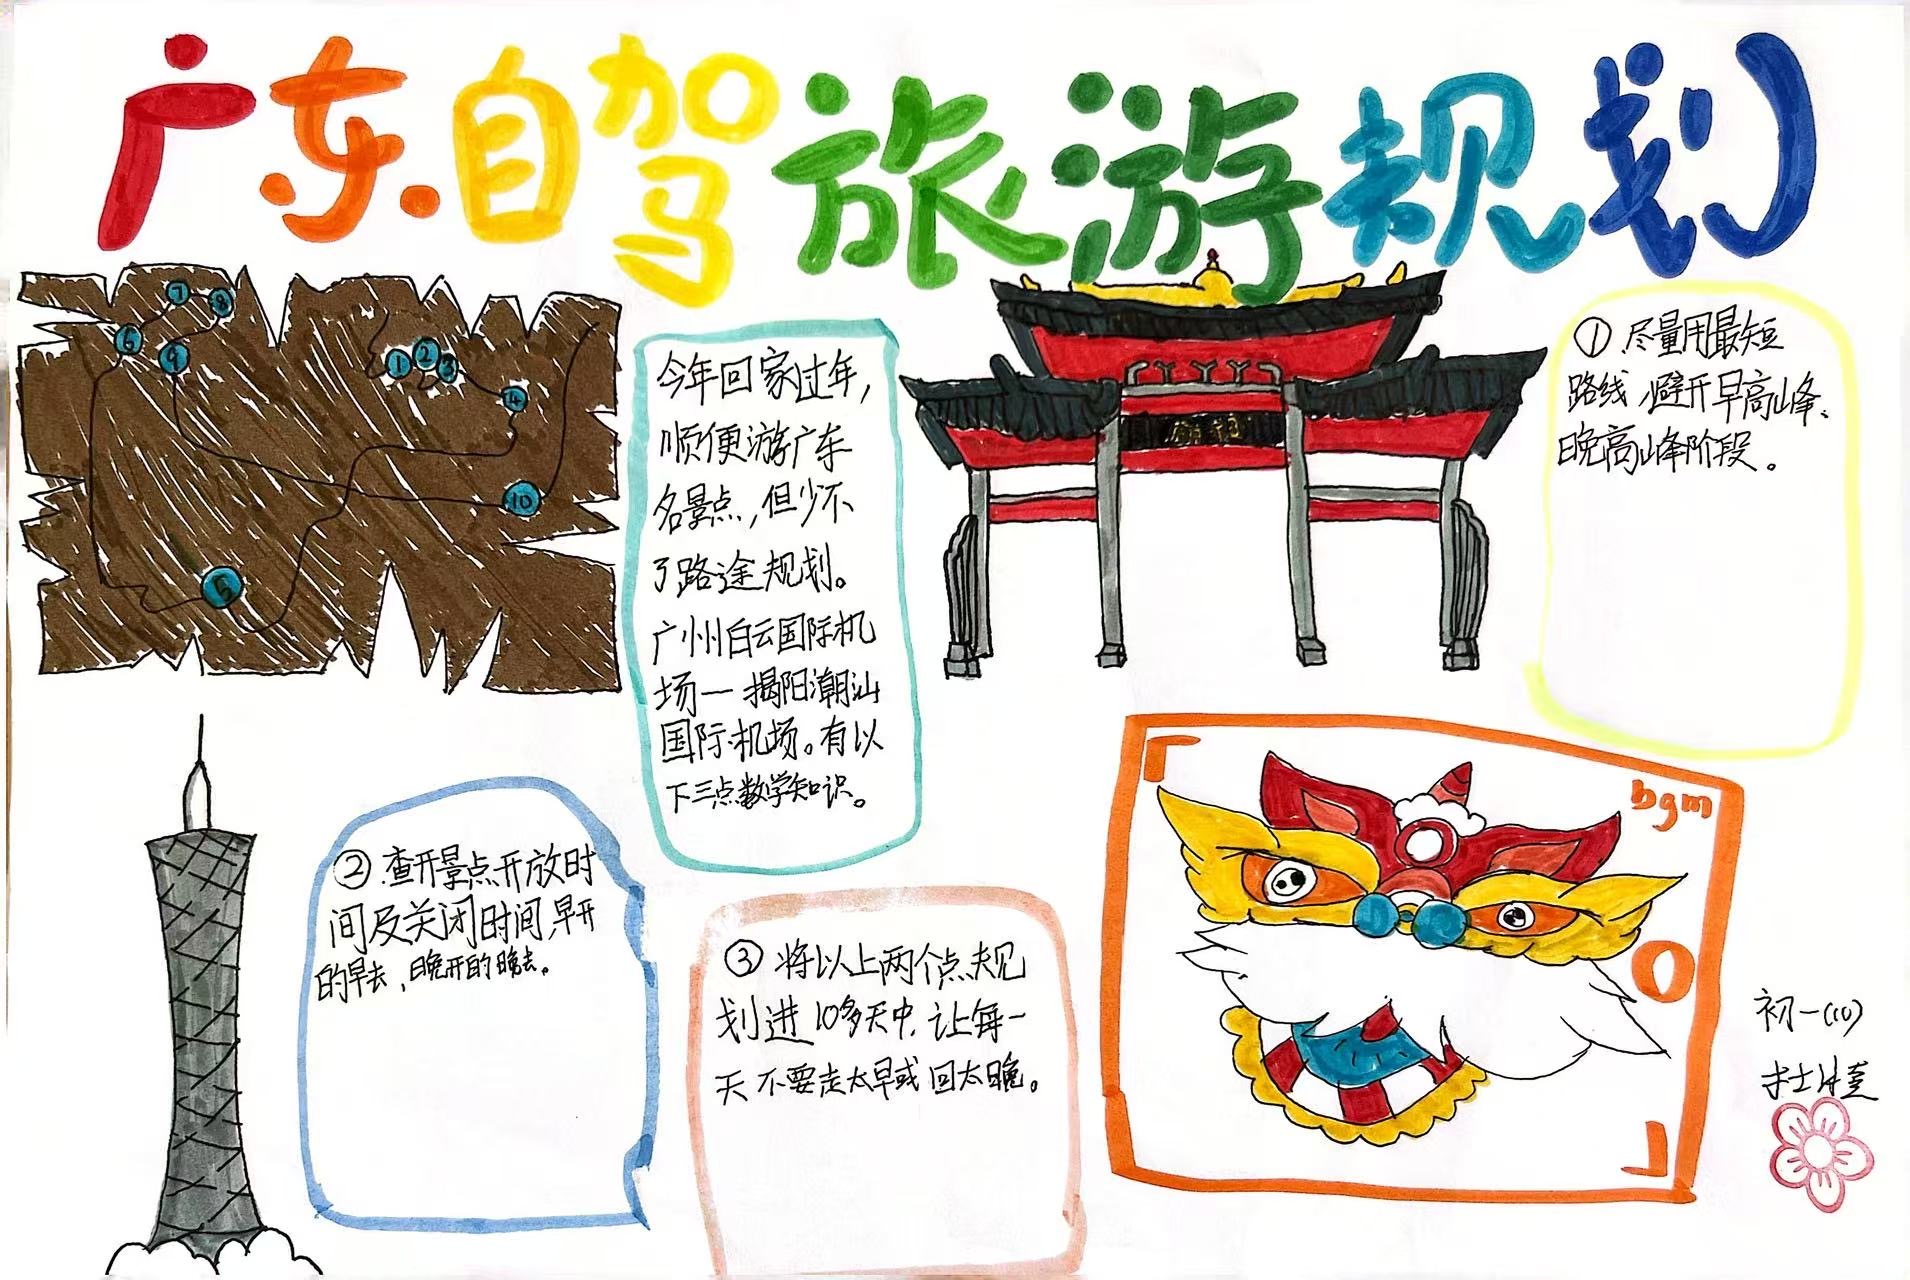 广东自驾旅游规划
7
8
6
9
1
2
3
4
10
5
今年回家过年，
顺便游广东
名景点，但少不
了路途规划。
广州白云国际机
场一揭阳潮汕
国际机场。有以
下三点数学知识。
祖廟
①尽量用最短
路线，避开早高峰、
晚高峰阶段。
②查开景点开放时
间及关闭时间，早开
的早去，晚开的晚去。
③将以上两个点规
划进10多天中，让每一
天不要走太早或回太晚。
bgm
初一(10)